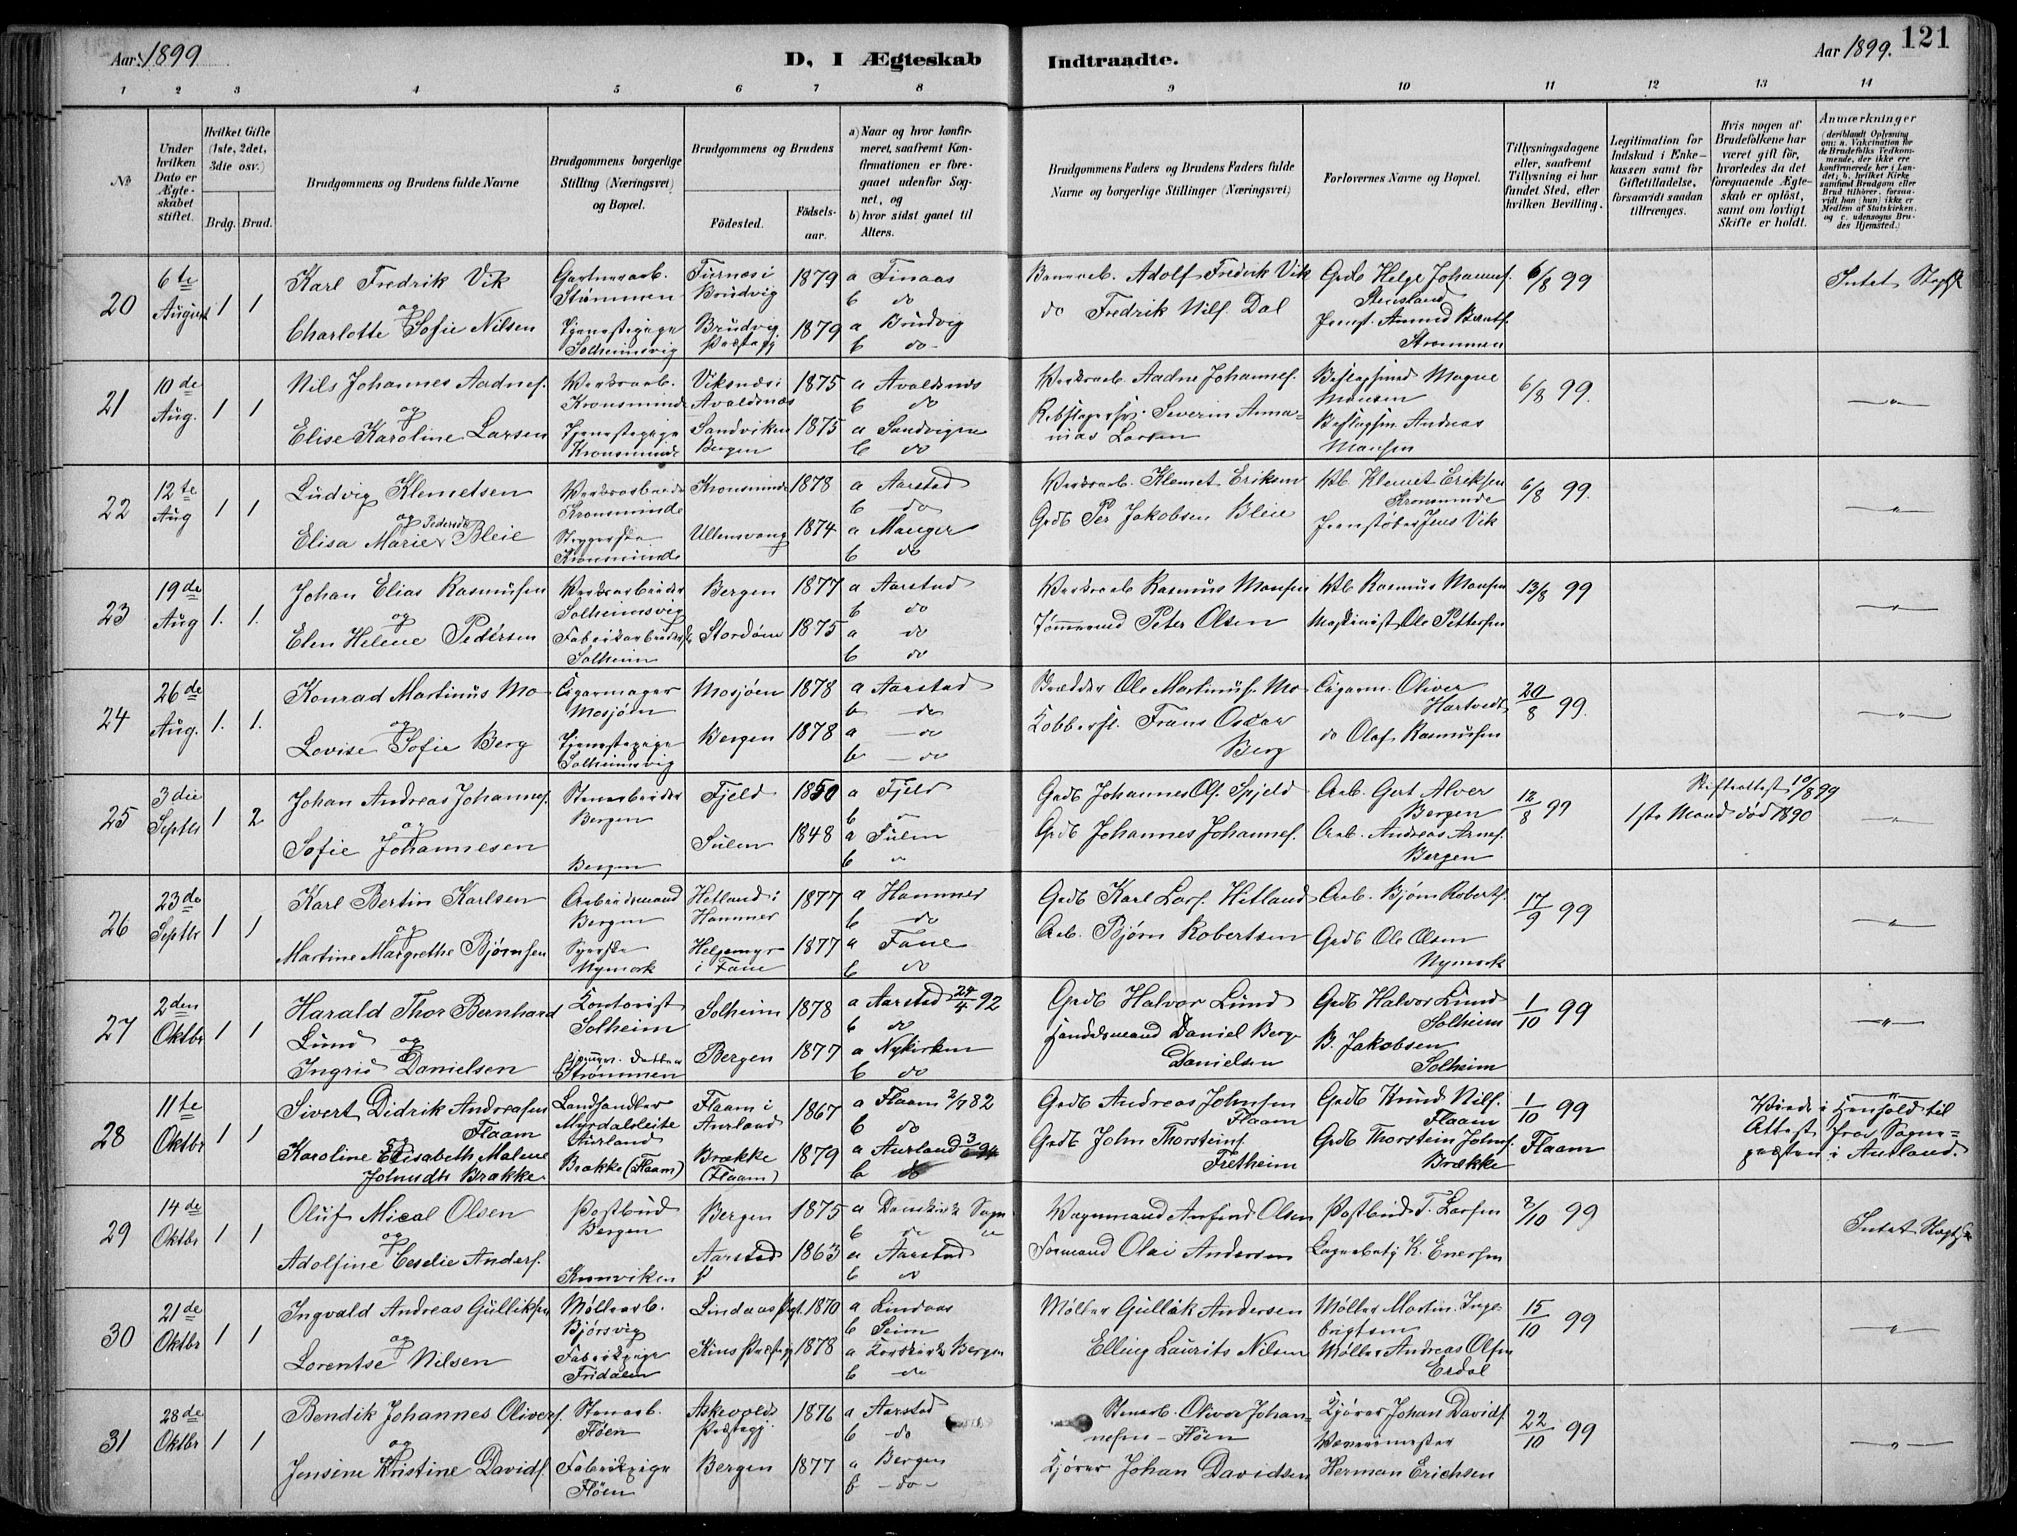 Aar 1899
D, I Ægteskab Indtraadte.
Aar 1899.
121
1 2 3 4 5 6 7 8 9 10 11 12 13 14
№
Under hvilken Dato er Ægteskabet stiftet.
Hvilket Gifte (1ste, 2det, 3die osv.)
Brdg. Brud.
Brudgommens og Brudens fulde Navne
Brudgommens borgerlige Stilling (Næringsvei) og Bopæl.
Brudgommens og Brudens
Fødested.
Fødselsaar.
a) Naar og hvor konfirmeret, saafremt Konfirmationen er foregaaet udenfor Sognet, og
b) hvor sidst gaaet til Alters.
Brudgommens Faders og Brudens Faders fulde Navne og borgerlige Stillinger (Næringsvei)
Forlovernes Navne og Bopæl.
Tillysningsdagene eller, saafremt Tillysning ei har fundet Sted, efter hvilken Bevilling.
Legitimation for Indskud i Enkekassen samt for Giftetilladelse, forsaavidt saadan tiltrænges.
Hvis nogen af Brudefolkene har været gift før, hvorledes da det foregaaende Ægteskab er opløst, samt om lovligt Skifte er holdt.
Anmærkninger (deriblandt Oplysning om: a. Vakcination for de Brudefolks Vedkommende, der ikke ere konfirmerede her i Landet; b. hvilket Kirkesamfund Brudgom eller Brud tilhører, forsaavidt han (hun) ikke er Medlem af Statskirken, og c. udensogns Brudes Hjemsted.)
20 6te August 1 1
Karl Fredrik Vik og Charlotte Sofie Nilsen
Gartnerarb. Strømmen
Tjenestepige Solheimsvig
Brudvig 1879
Brudvig Præstegj 1879
a
b do
a Brudvig
b do
Adolf Fredrik Vik
do Fredrik Nils. Dal
Grdb Helge Johannes.
6/8 99
Intet
21 10de Aug. 1 1
Nils Johannes Aadnes. og Elise Karoline Larsen
Værksarb. Kronsminde
Tjenestepige Kronsminde
Viksnæs i Avaldsnæs 1875
Sandviken Bergen 1875
a Avaldsnes
b do
a Sandvigen
b do
Værksarb. Aadne Johannes.
Severin Annanias Larsen
Mogne Monsen
Andreas Monsen
6/8 99.
"
22 12te Aug 1 1
Ludvig Klemetsen og Elisa Marie Pedersd. Bleie
Værksarbeider Kronsminde
Strygerske Kronsminde
Kronsminde 1878
Ullensvang 1874
a Aarstad
b do
a Manger
b do
Værksarb. Klemet Eriksen
Grdb Per Jakobsen Bleie
Vkb. Klemet Eriksen Kronsminde
Jernstøber Jens Vik
6/8 99.
"
23 19de Aug 1. 1.
Johan Elias Rasmusen og Elen Helene Pedersen
Værksarbeider Solheimsvig
Fabrikarbeiderske Solheim
Bergen 1877
Stordøen 1875
a Aarstad
b do
a do
b do
Værksarb Rasmus Monsen
Tømmermd Peter Olsen
Vkb Rasmus Monsen
Maskinist Ole Pettersen
13/8 99
"
24 26de Aug. 1. 1.
Konrad Martinus Mo og Lovise Sofie Berg
Cigarmager Mosjøen
Tjenestepige Solheimsvig
Mosjøen 1878
Bergen 1878
a Aarstad
b do
a do
b do
Ole Martinus. Mo
Kobbersl. Frans Oscar Berg
Cigarm. Oliver Hartvedt
do Olaf Rasmussen
20/8 99.
"
25 3die Septbr 1 2
Johan Andreas Johannes. og Sofie Johannesen
Stenarbeider Bergen
Bergen
Fjeld 1850
Sulen 1848
a Fjeld
b "
a Sulen
b "
Grdb Johannes Ols. Spjeld
Grdb Johannes Johannes.
Arb. Gert Alver Bergen
Arb. Andreas Arnes. Bergen
12/8 99
Skifteattest 10/8 99
1ste Mand død 1890
"
26 23de Septbr 1 1
Karl Bertin Karlsen og Martine Margrethe Bjørnsen
Arbeidsmand Bergen
Syerske Nymark
Hetland i Hammer 1877
Helgemyr i Fane 1877
a Hammer
b do
a Fane
b do
Grdb Karl Lars. Hitland
Arb. Bjørn Robertsen
Arb. Bjørn Roberts.
Grdb Ole Olsen Nymark
17/9 99
"
27 2den Oktbr 1 1
Harald Thor Bernhard Lund og Ingrid Danielsen
Kontorist Solheim
Strømmen
Solheim 1878
Bergen 1877
a Aarstad 24/4 92
b do
a Nykirken
b do
Grdb Halvor Lund
Handelsmand Daniel Berge Danielsen
Grdb Halvor Lund Solheim
B. Jakobsen Solheim
1/10 99
"
28 11te Oktbr 1 1
Sivert Didrik Andreasen Flaam og Karoline Elisabeth Malene Johnsdtr Brække
Landhandler Myrdalsleite Aurland
Brække (Flaam)
Flaam i Aurland 1867
Brække (Flaam) 1879
a Flaam 2/7 82
b do
a Aurland
b do
Grdb Andreas Johnsen Flaam
Grdb John Thorsteins. Fretheim
Grdb Knud Nils. Flaam
Grdb Thorstein Johns. Brække
1/10 99 Flaam
Viede i Henhold til Attest fra Sognepræsten i Aurland.
29 14de Oktbr 1 1
Oluf Mical Olsen og Adolfine Ceselie Anders.
Postbud Bergen
Bergen 1875
Aarstad 1863
a Domkirk Sogn
b do
a Aarstad
b do
Vognmand Anfind Olsen
Formand Olai Andersen
Postbud T. Larsen
K. Enersen
99
Intet
30 21de Oktbr 1 1
Ingvald Andreas Gulliksen og Lorentse Nilsen
Møllerarb. Bjørsvig
Fabrikpige Fridalen
Lindaas Pgt. 1870
Kins Præstegj 1878
a Lindaas
b Seim
a Korskirk Bergen
b do
Møller Gullak Andersen
Elling Laurits Nilsen
Møller Martin Ingebrigtsen
Møller Andreas Olsen Erdal
15/10 99
"
31 28de Oktbr 1 1
Bendik Johannes Olivers. og Jensine Kristine Davids.
Stenarb. Fløen
Fabrikpige Fløen
Askevolds Præstegj. 1876
Bergen 1877
a Aarstad
b do
a Bergen
b do
Stenarb. Oliver Johannesen Fløen
Kjører Johan Davidsen
Kjører Johan Davids.
Herman Erichsen
22/10 99
"